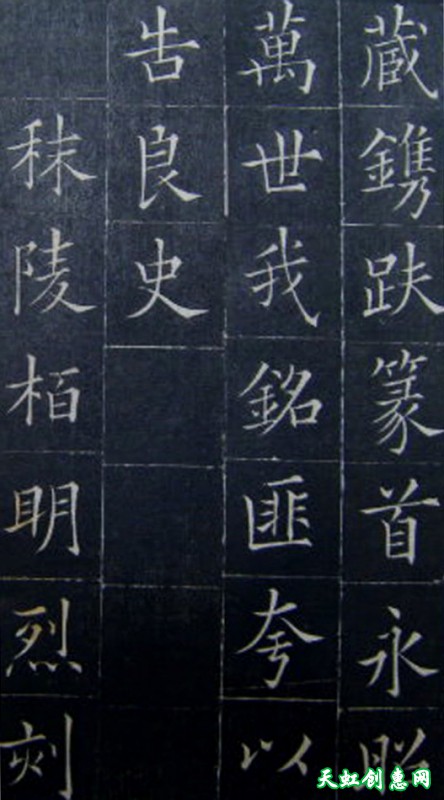 蔵鐫趺篆首永昭
萬世我銘匪夸以
告良史
秣陵栢眀烈刻
天虹创惠网